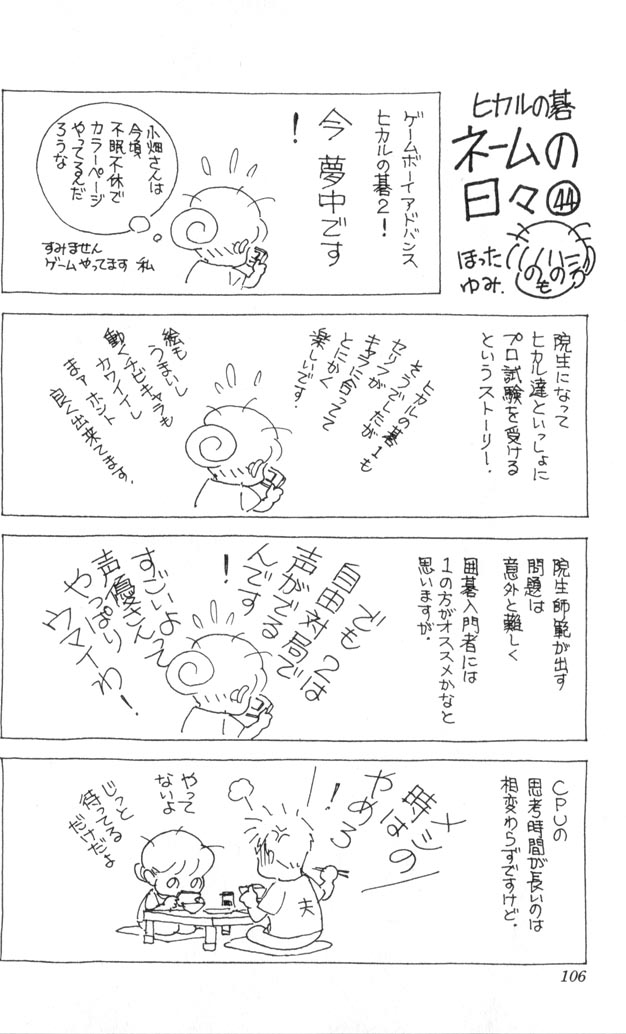 ヒカルの碁
ネームの
日々㊹
ほった
ゆみ.
ゲームボーイアドバンス
ヒカルの碁2!
今 夢中です
!
小畑さんは
今頃
不眠不休で
カラーページ
やってるんだ
ろうな
すみません
ゲームやってます 私
院生になって
ヒカル達といっしょに
プロ試験を受ける
というストーリー.
ヒカルの碁1も
そうでしたが
セリフが
キャラに合ってて
とにかく
楽しいです.
絵も
うまいし
動くチビキャラも
カワイイし
まァ ホント
良く出来てます.
院生師範が出す
問題は
意外と難しく
囲碁入門者には
1の方がオススメかなと
思いますが.
でも 2は
自由対局で
声がでる
んです
!
すごいよって
声優さんて
やっぱり
ウマイわ!
CPUの
思考時間が長いのは
相変わらずですけど.
メシの
時は
やめろ
!
やって
ないよ
じっと
待ってる
だけだよ
夫
106